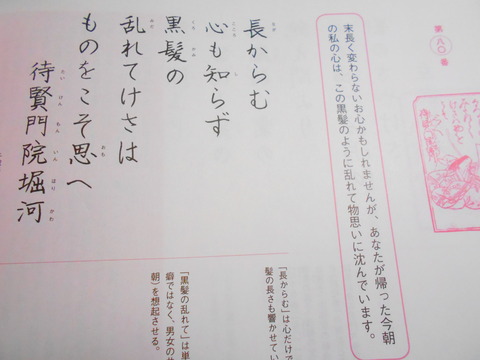 第八〇番
末長く変わらないお心かもしれませんが、あなたが帰った今朝
の私の心は、この黒髪のように乱れて物思いに沈んでいます。
長からむ
心も知らず
黒髪の
乱れてけさは
ものをこそ思へ
待賢門院堀河
「長からむ」は心だけで
髪の長さも響かせてい
「黒髪の乱れて」は単
癖ではなく、男女の
朝）を想起させる。